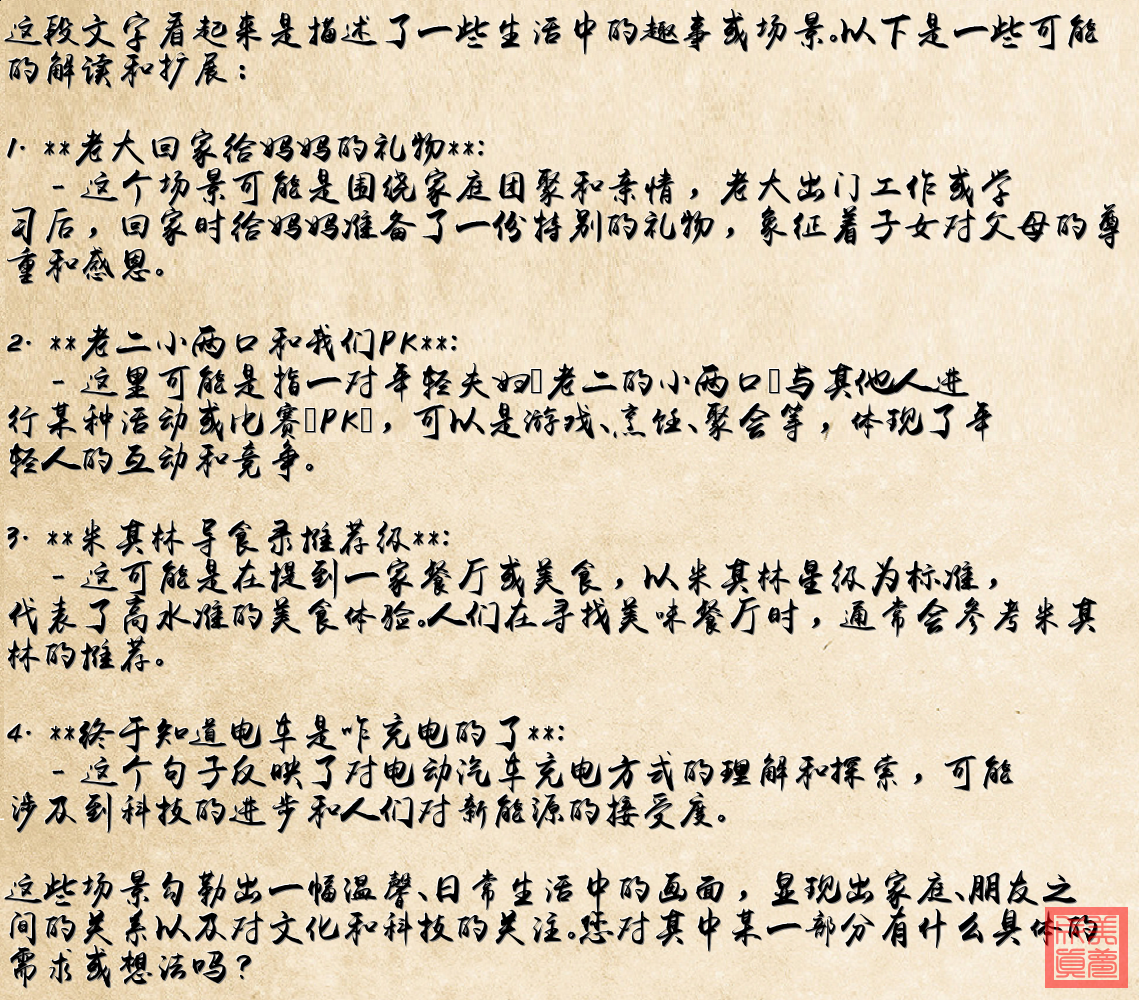 这段文字看起来是描述了一些生活中的趣事或场景。以下是一些可能
的解读和扩展：
1. **老大回家给妈妈的礼物**:
- 这个场景可能是围绕家庭团聚和亲情，老大出门工作或学
习后，回家时给妈妈准备了一份特别的礼物，象征着子女对父母的尊
重和感恩。
2. **老二小两口和我们PK**:
- 这里可能是指一对年轻夫妇▯老二的小两口▯与其他人进
行某种活动或比赛▯PK▯，可以是游戏、烹饪、聚会等，体现了年
轻人的互动和竞争。
3. **米其林导食录推荐级**:
- 这可能是在提到一家餐厅或美食，以米其林星级为标准，
代表了高水准的美食体验。人们在寻找美味餐厅时，通常会参考米其
林的推荐。
4. **终于知道电车是咋充电的了**:
- 这个句子反映了对电动汽车充电方式的理解和探索，可能
涉及到科技的进步和人们对新能源的接受度。
这些场景勾勒出一幅温馨、日常生活中的画面，显现出家庭、朋友之
间的关系以及对文化和科技的关注。您对其中某一部分有什么具体的
需求或想法吗？